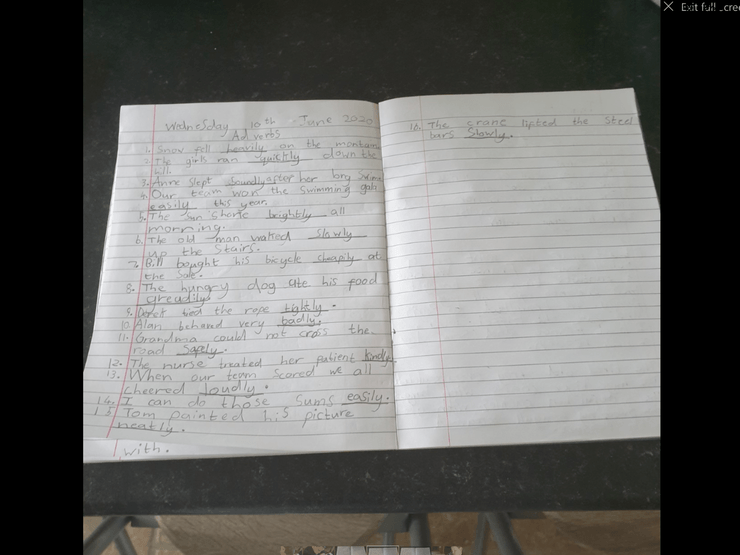 Exit full
Wednesday 10th June 2020
Adverbs
1. Snow fell heavily on the
2. The girls ran quickly down the
hill.
3. Anne slept soundly after her long
4. Our team won the swimming gala
easily this year.
5. The sun shone brightly all
morning.
6. The old man walked slowly
up the stairs.
7. Bill bought his bicycle cheaply at
the sale.
8. The hungry dog ate his food
greadily
9. Derek tied the rope tightly.
10. Alan behaved very badly.
11. Grandma could not cross the
road safely.
12. The nurse treated her patient kindly
13. When our team scored we all
cheered loudly.
14. I can do those sums easily.
15 Tom painted his picture
neatly.
with.
16. The crane lifted the steel
bars slowly.